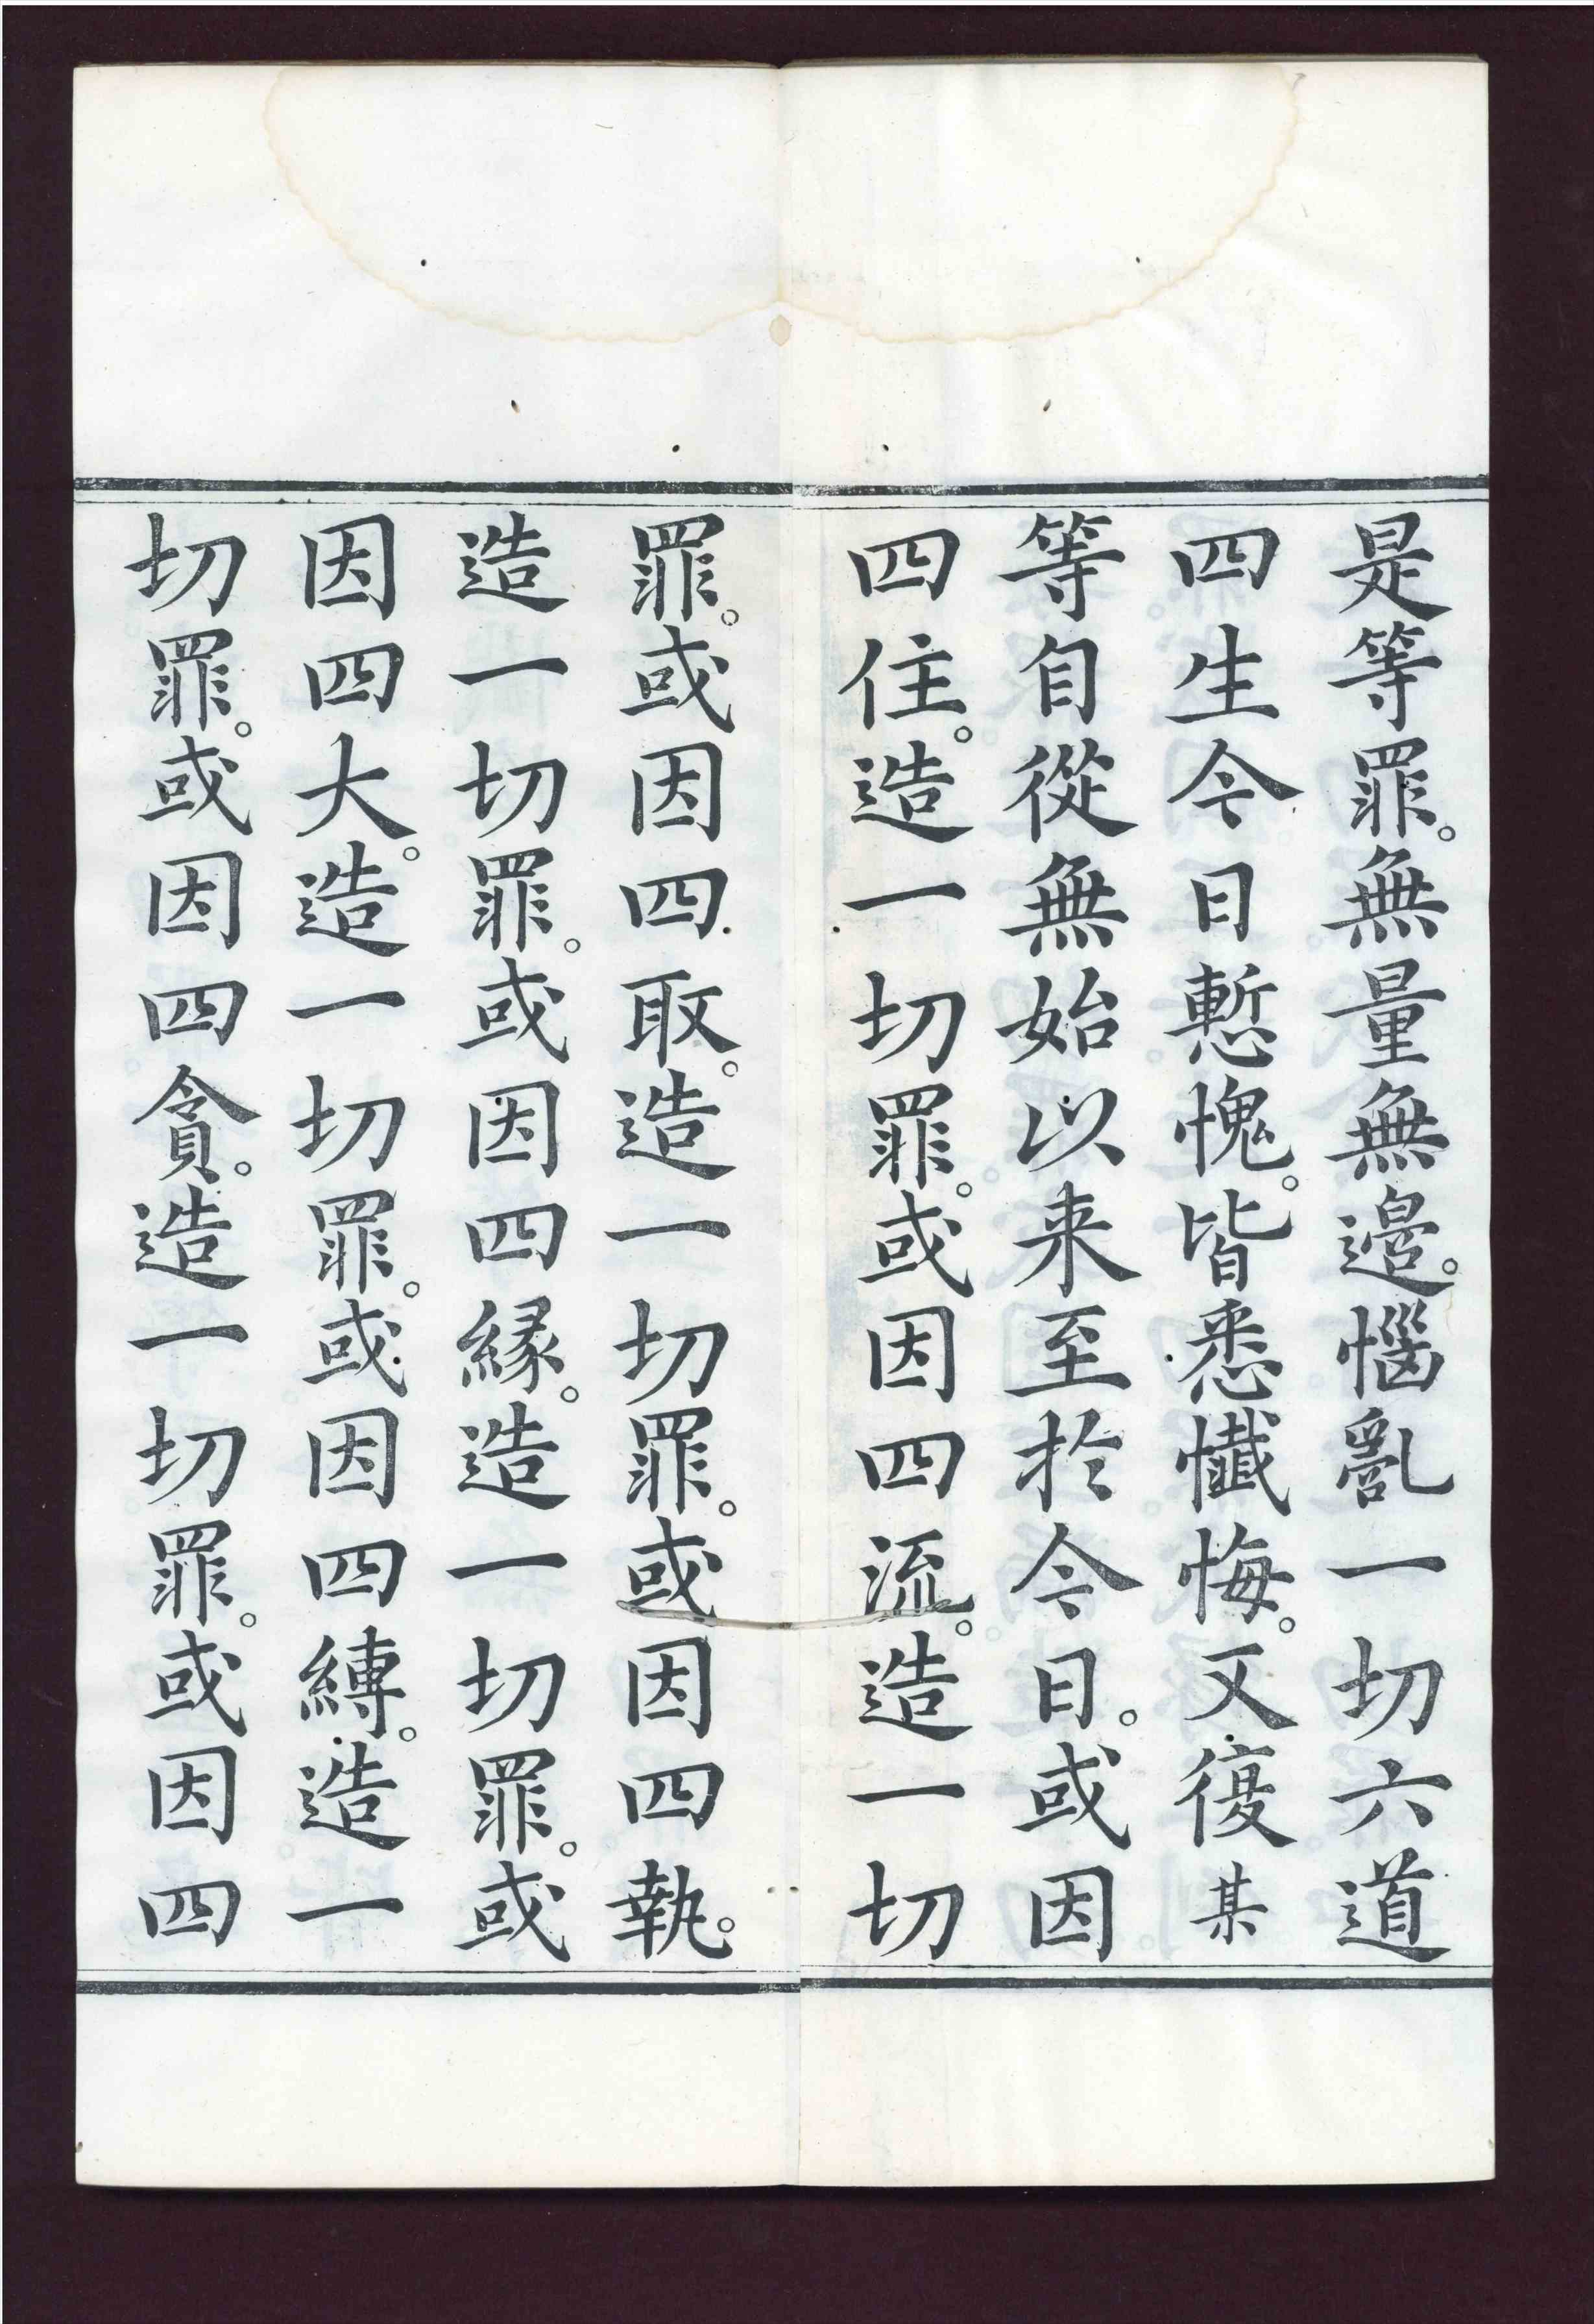 是等罪。無量無邊。惱亂一切六道
四生今日慙愧。皆悉懺悔。又復某
等自從無始以来至於今日。或因
四住。造一切罪。或因四流。造一切
罪。或因四取。造一切罪。或因四執。
造一切罪。或因四緣。造一切罪。或
因四大。造一切罪。或因四縛。造一
切罪。或因四貪。造一切罪。或因四